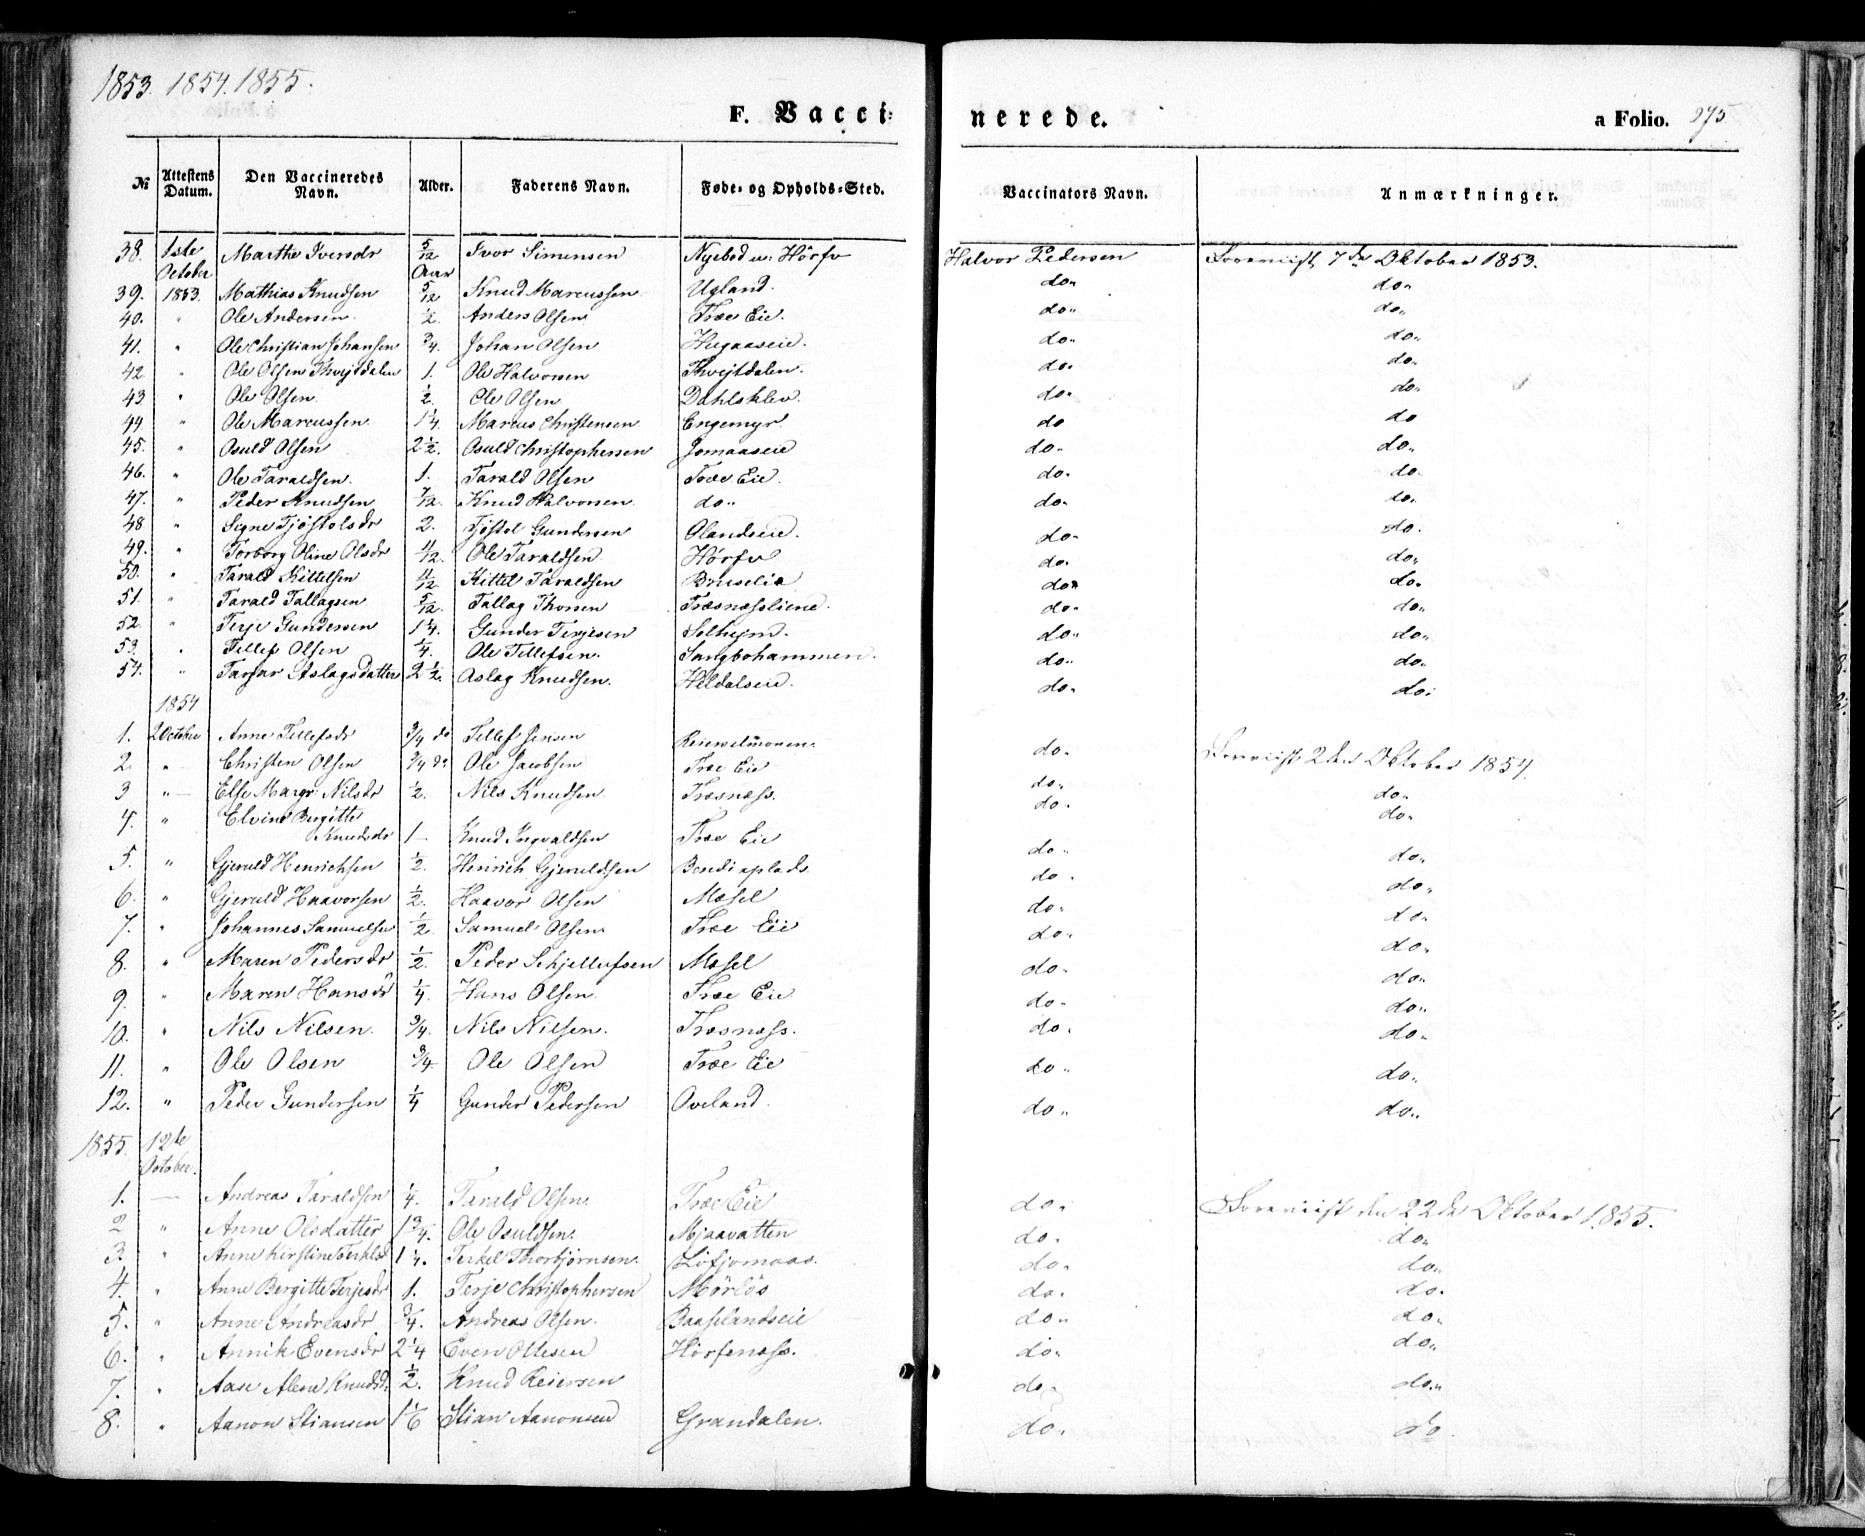 1853. 1854. 1855.
F. Vaccinerede. a Folio. 275
№ Attestens Datum. Den Vaccineredes Navn. Alder. Faderens Navn. Føde- og Opholds-Sted. Vaccinators Navn. Anmærkninger.
38. 1ste October Marthe Iversdr 5/12 Aar Ivor Simensen Nyebod u: Hörfv Halvor Pedersen 7de Oktober 1853.
39. 1853. Mathias Knudsen 5/12 Knud Marcussen Ugland. do" do"
40. " Ole Andersen. 1/2 Anders Olsen Træe Eie. do" do"
41. " Ole Christian Johansen 3/4. Johan Olsen Hugaaseie. do" do"
42 " Ole Olsen Thvejtdalen 1. Ole Halvorsen Thvejtdalen. do" do"
43. " Ole Olsen. 1/2. Ole Olsen Dahlsklev. do" do"
44. " Ole Marcussen. 1 1/4. Marcus Christensen Engemyr do do
45. " Osuld Olsen 2 1/2. Osuld Christophersen Jomaaseie do" do"
46. " Ole Taraldsen. 1. Tarald Olsen Træe Eie. do" do"
47. " Peder Knudsen 7/12. Knud Halvorsen. do" do" do"
48 " Signe Tjöstolsdr 2. Tjöstol Gundersen Olandseie. do" do"
49. " Torborg Oline Olsdr 11/12. Ole Taraldsen Hörfv do" do"
50. " Tarald Kittelsen 11/12 Kittel Taraldsen Bruselia do" do"
51. " Tarald Tallagsen 5/12. Tallag Thorsen Træsnæssliene. do" do"
52 " Terje Gundersen 1 1/4. Gunder Terjesen Solhejm. do" do"
53. " Tellef Olsen 1/4. Ole Tellefsen. Sangbohammen. do" do"
54. " Tarjar Aslagsdatter 2 1/2. Aslag Knudsen. Hildalseie. do" do"
1854
1. 2 October Anne Tellefsdr 3/4 do Tellef Jensen Reierselmonen. do" 2den Oktober 1854.
2. " Christen Olsen 3/4 do Ole Jacobsen Træe Eie do" do"
3 " Else Margr. Nilsdr 1/2. Nils Knudsen. Træsnæss. do" do"
4. " Elvine Bergitte
Knudsdr 1 Knud Ingvaldsen Træe Eie do" do"
5. " Gjeruld Henrichsen 1/2. Henrich Gjeruldsen Bendixplads. do" do"
6. " Gjeruld Haavorsen 1/2. Haavor Olsen Mosel do" do"
7. " Johannes Samuelsen 1/2. Samuel Olsen. Træe Eie do" do"
8. " Maren Pedersdr 1/2. Peder Schjellufsen Mosel do" do"
9. " Maren Hansdr 1/4. Hans Olsen. Træe Eie do" do"
10. " Nils Nilsen. 3/4. Nils Nilsen. Træsnæss. do" do"
11. " Ole Olsen 3/4 Ole Olsen Træe Eie do" do"
12. " Peder Gundersen 1/4 Gunder Pedersen Oveland. do" do"
1855. 12te October.
1. Andreas Taraldsen 1/4. Tarald Olsen. Træe Eie do" den 22de Oktober 1855.
2 " Anne Olsdatter 1 3/4. Ole Osuldsen. Mjaavatten do" do"
3. " Anne Kirstine Terkelsd 1 1/4. Terkel Thorbjørnsen. Löfjomaas. do" do"
4. " Anne Bergitte Terjesdr 1. Terje Christophersen Mörlös do" do"
5. " Anne Andreasdr 3/4. Andreas Olsen. Baaselandseie do" do"
6. " Annik Evensdr 2 1/4 Even Ollesen Hörfenæss. do" do"
7. " Aase Alene Knudsd. 1/2. Knud Reiersen do" do"
8. " Aanon Stiansen 1 1/6 Stian Aanonsen Grandalen. do" do.